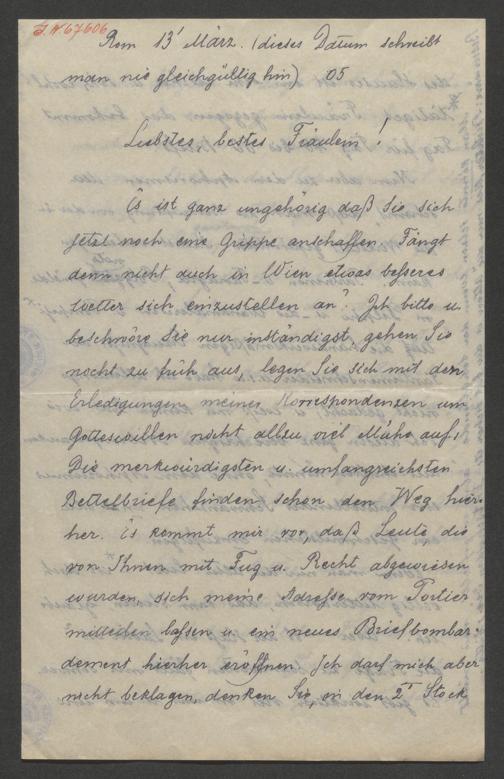 I.N 67606
Rom 13' März. (dieses Datum schreibt
man nie gleichgültig hin) 05
Liebstes, bestes Fräulein!
Es ist ganz ungehörig daß Sie sich
jetzt noch eine Grippe anschaffen. Fängt
denn nicht auch in Wien etwas besseres
Wetter sich einzustellen an? Ich bitte u.
beschwöre Sie nur inständigst, gehen Sie
nicht zu früh aus, legen Sie sich mit den
Erledigungen meiner Korrespondenzen um
Gotteswillen nicht allzu viel Mühe auf!
Die merkwürdigsten u. umfangreichsten
Bettelbriefe finden schon den Weg hier-
her. Es kommt mir vor, daß Leute die
von Ihnen mit Fug u. Recht abgewiesen
wurden, sich meine Adresse vom Portier
mitteilen lassen u. ein neues Briefbombar-
dement hierher eröffnen. Ich darf mich aber
nicht beklagen, denken Sie, in den 2t Stock